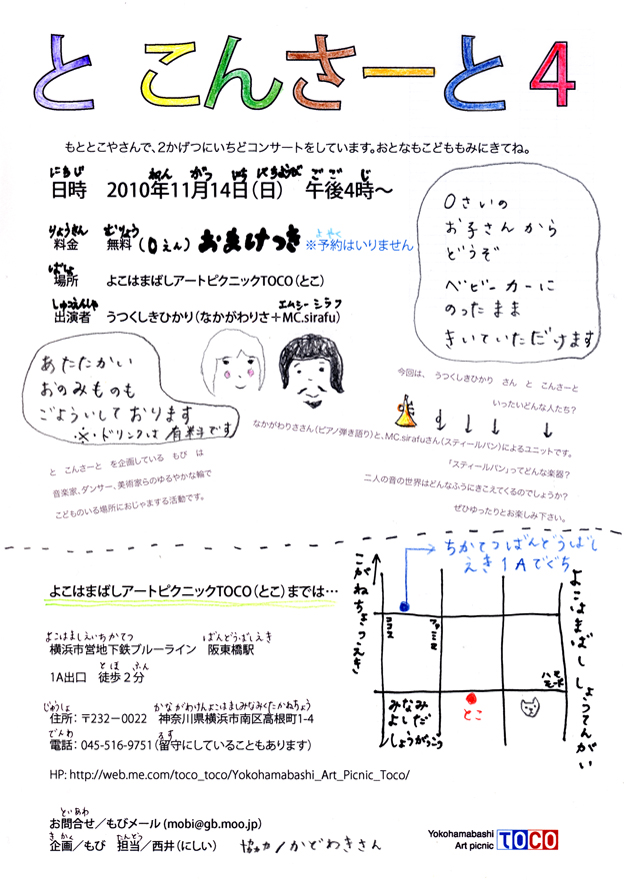 と こんさーと 4
もととこやさんで、2かげつにいちどコンサートをしています。おとなもこどももみにきてね。
にちじ ねん がつ にち にちようび ごご じ
日時 2010年11月14日(日) 午後4時～
りょうきん むりょう よやく
料金 無料(0えん) おまけつき ※予約はいりません
ばしょ
場所 よこはまばしアートピクニックTOCO(とこ)
しゅつえんしゃ エムシー シラフ
出演者 うつくしきひかり(なかがわりさ+MC.sirafu)
0さいの
お子さんから
どうぞ
ベビーカーに
のったまま
きいていただけます
あたたかい
おのみものも
ごよういしております
※・ドリンクは有料です
と こんさーと を企画している もび は
音楽家、ダンサー、美術家らのゆるやかな輪で
こどものいる場所におじゃまする活動です。
今回は、 うつくしきひかり さん と こんさーと
いったいどんな人たち?
なかがわりささん(ピアノ弾き語り)と、MC.sirafuさん(スティールパン)によるユニットです。
「スティールパン」ってどんな楽器?
二人の音の世界はどんなふうにきこえてくるのでしょうか?
ぜひゆったりとお楽しみ下さい。
よこはまばしアートピクニックTOCO(とこ)までは…
よこはましえいちかてつ ばんどうばしえき
横浜市営地下鉄ブルーライン 阪東橋駅
とほ ふん
1A出口 徒歩2分
じゅうしょ かながわけんよこはましみなみくたかねちょう
住所:〒232-0022 神奈川県横浜市南区高根町1-4
でんわ るす
電話:045-516-9751(留守にしていることもあります)
HP: http://web.me.com/toco_toco/Yokohamabashi_Art_Picnic_Toco/
といあわ
お問合せ/もびメール (mobi@gb.moo.jp)
きかく たんとう
企画/もび 担当/西井(にしい) 協力/かどわきさん
ちかてつばんどうばし
えき1Aでぐち
こがねちょうえき
ココス
ファミマ
よこはまばししょうてんがい
みなみ
よしだ
しょうがっこう
とこ
Yokohamabashi
Art picnic TOCO